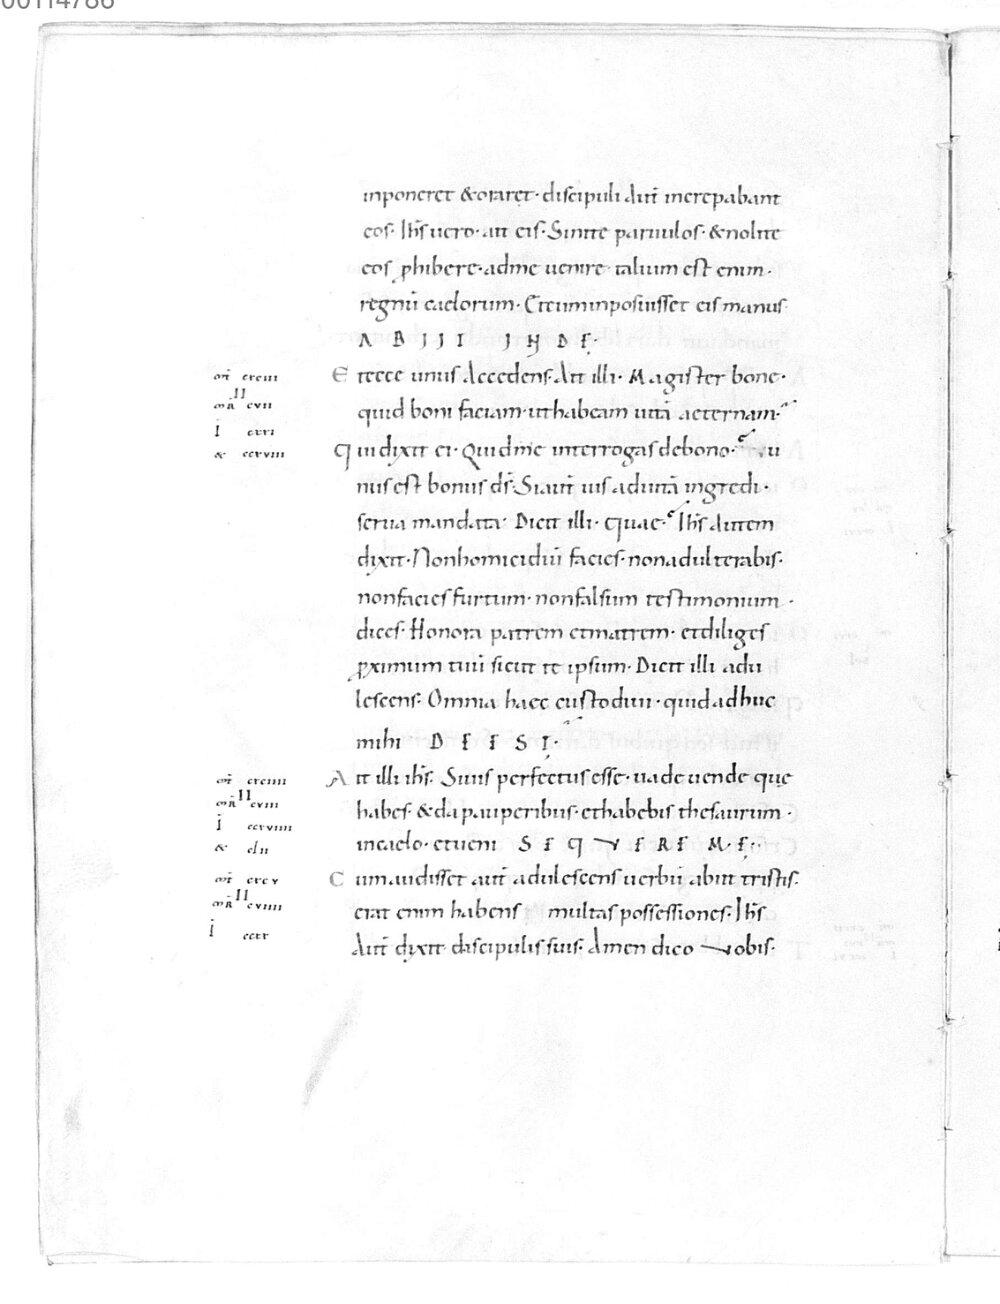 00114786
inponeret &oraret· discipuli aut̄ increpabant
eos· Ih̄s uero· ait eis· Sinite paruulos· &nolite
eos ꝓhibere· adme uenire· talium est enim·
regnū caelorum· Etcuminposuisset eis manus·
A B I I I I N D E·
mt̄ cxciii
mR̄ II cvii
I ccxvi
& ccxviii
Etecce unus Accedens· Ait illi· Magister bone·
quid boni faciam· uthabeam uitā aeternam·
Qui dixit ei· Quidme interrogas debono· u
nus est bonus ds̄· Siaut̄ uis aduitā ingredi·
serua mandata· Dicit illi· Quae· Ih̄s autem
dixit· Nonhomicidiū facies· nonadulterabis·
nonfacies furtum· nonfalsum testimonium·
dices· Honora patrem etmatrem· etdiliges
ꝓximum tuū sicut te ipsum· Dicit illi adu
lescens· Omnia haec custodiui· quidadhuc
mihi D E E S T·
mt̄ cxciiii
mR̄ II cviii
I ccxviiii
& clii
Ait illi ih̄s· Siuis perfectus esse· uade uende que
habes· &da pauperibus· ethabebis thesaurum·
incaelo· etueni S E Q V E R E M E·
mt̄ cxcv
mR̄ II cviiii
I ccxx
Cumaudisset aut̄ adulescens uerbū abiit tristis·
erat enim habens multas possessiones· Ih̄s
Aut̄ dixit discipulis suis· Amen dico Vobis·